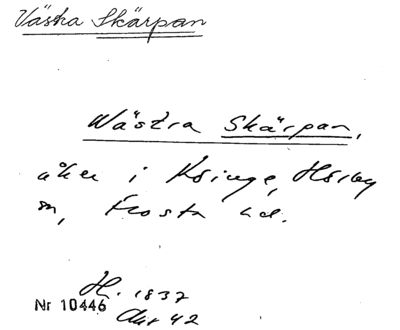 Västra Skärpan
Wästra Skärpan,
åker i Ksinge, Hörby
sn, Frosta hd.
H. 1837
Nr 10446
Akt 42